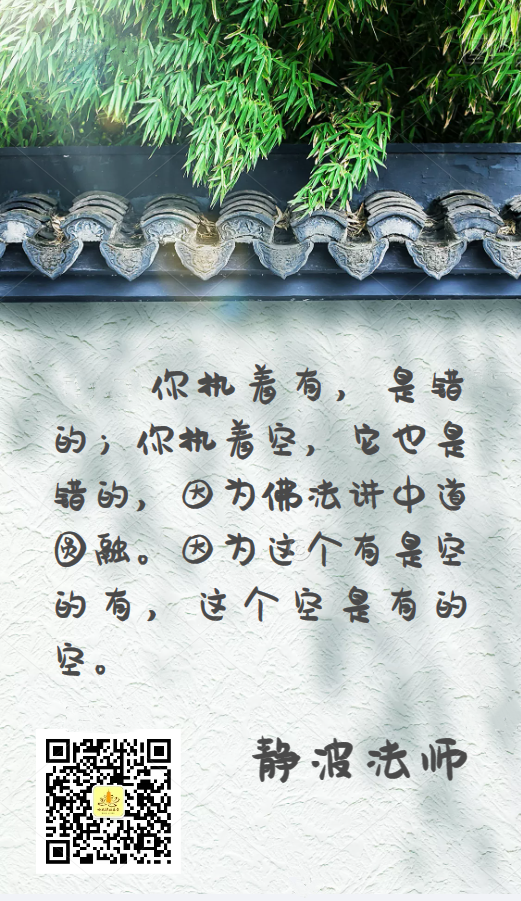 你执着有，是错
的；你执着空，它也是
错的，因为佛法讲中道
圆融。因为这个有是空
的有，这个空是有的
空。
静波法师